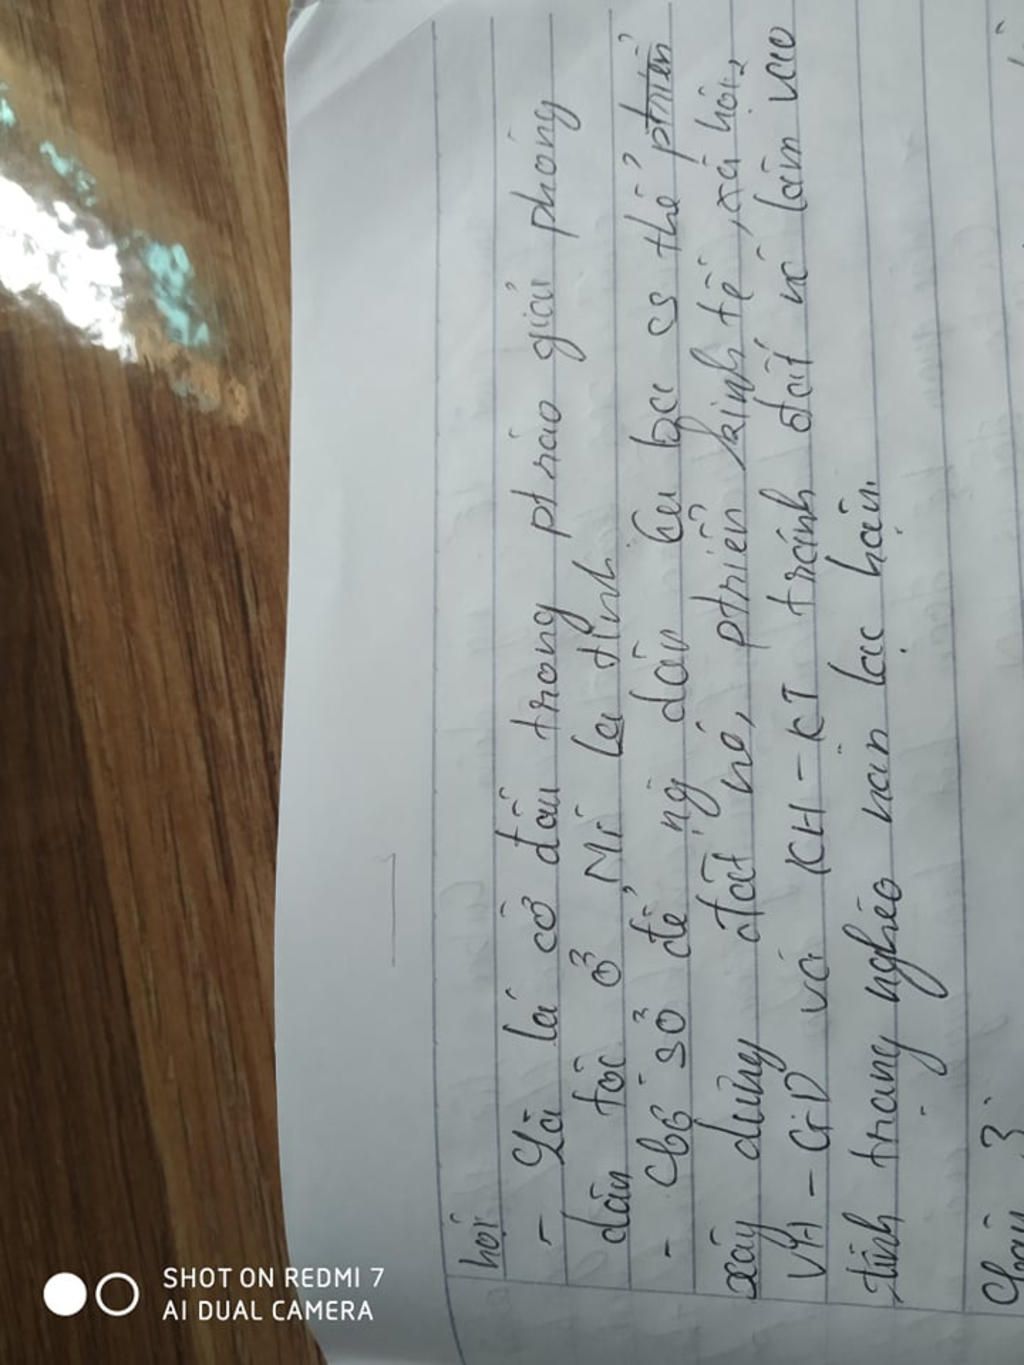 hội
- Là lá cờ đầu trong ptrào giải phóng
dân tộc ở Mĩ la tinh
- Có sở để ng dân cu ba cs thể ptriển
xây dựng đất nc, ptriển kinh tế, xã hội,
VH - GD và KH - KT tránh đất nc lâm vào
tình trạng nghèo nàn lạc hậu.
3
SHOT ON REDMI 7
AI DUAL CAMERA